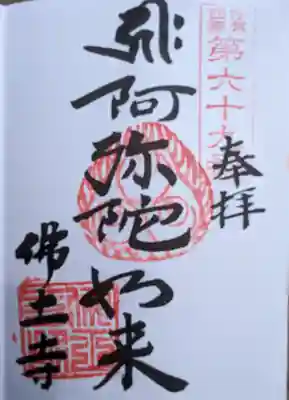 第六十九
奉拝
阿弥陀如来
佛土寺